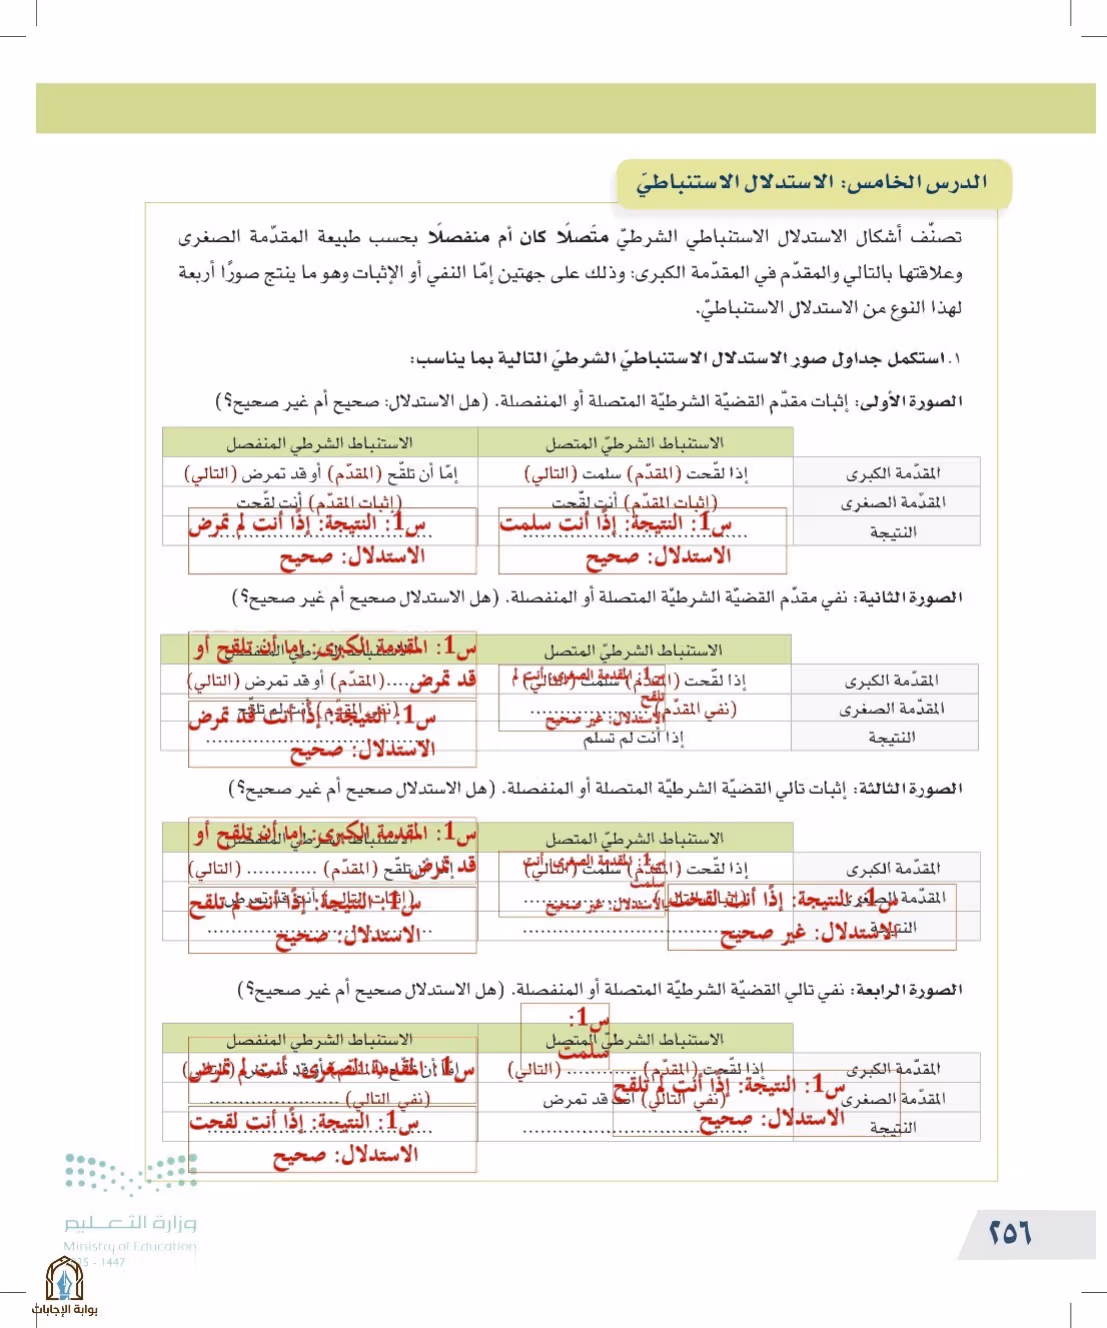 الدرس الخامس: الاستدلال الاستنباطيّ
تصنّف أشكال الاستدلال الاستنباطي الشرطيّ متّصلًا كان أم منفصلًا بحسب طبيعة المقدّمة الصغرى
وعلاقتها بالتالي والمقدّم في المقدّمة الكبرى: وذلك على جهتين إمّا النفي أو الإثبات وهو ما ينتج صورًا أربعة
لهذا النوع من الاستدلال الاستنباطيّ.
١. استكمل جداول صور الاستدلال الاستنباطيّ الشرطيّ التالية بما يناسب:
الصورة الأولى: إثبات مقدّم القضيّة الشرطيّة المتصلة أو المنفصلة. (هل الاستدلال: صحيح أم غير صحيح؟)
الاستنباط الشرطيّ المتصل الاستنباط الشرطي المنفصل
المقدّمة الكبرى إذا لقّحت (المقدّم) سلمت (التالي) إمّا أن تلقّح (المقدّم) أو قد تمرض (التالي)
المقدّمة الصغرى (إثبات المقدّم) أنت لقّحت (إثبات المقدّم) أنت لقّحت
النتيجة س1: النتيجة: إذًا أنت سلمت س1: النتيجة: إذًا أنت لم تمرض
الاستدلال: صحيح الاستدلال: صحيح
الصورة الثانية: نفي مقدّم القضيّة الشرطيّة المتصلة أو المنفصلة. (هل الاستدلال صحيح أم غير صحيح؟)
الاستنباط الشرطيّ المتصل س1: المقدمة الكبرى: إما أن تلقح أو
قد تمرض
المقدّمة الكبرى إذا لقّحت (المقدّم) سلمت (التالي) .....(المقدّم) أو قد تمرض (التالي)
س1: المقدمة الصغرى: أنت لم
تلقح
المقدّمة الصغرى (نفي المقدّم) .................... (نفي المقدّم) أنت لم تلقّح
الاستدلال: غير صحيح س1: النتيجة: إذًا أنت قد تمرض
النتيجة إذا أنت لم تسلم
الاستدلال: صحيح
الصورة الثالثة: إثبات تالي القضيّة الشرطيّة المتصلة أو المنفصلة. (هل الاستدلال صحيح أم غير صحيح؟)
الاستنباط الشرطيّ المتصل س1: المقدمة الكبرى: إما أن تلقح أو
قد تمرض
المقدّمة الكبرى إذا لقّحت (المقدّم) سلمت (التالي) إمّا أن تلقّح (المقدّم) ............ (التالي)
س1: المقدمة الصغرى: أنت
سلمت
الاستدلال: غير صحيح
المقدّمة الصغرى س1: النتيجة: إذًا أنت لقحت س1: النتيجة: إذًا أنت لم تلقح
النتيجة الاستدلال: غير صحيح الاستدلال: صحيح
الصورة الرابعة: نفي تالي القضيّة الشرطيّة المتصلة أو المنفصلة. (هل الاستدلال صحيح أم غير صحيح؟)
س1:
سلمت
الاستنباط الشرطيّ المتصل الاستنباط الشرطي المنفصل
المقدّمة الكبرى إذا لقّحت (المقدّم) ............ (التالي) س1: المقدمة الصغرى: أنت لم تمرض
س1: النتيجة: إذًا أنت لم تلقح
المقدّمة الصغرى (نفي التالي) أنت قد تمرض (نفي التالي) ......................
الاستدلال: صحيح س1: النتيجة: إذًا أنت لقحت
النتيجة
الاستدلال: صحيح
وزارة التعليم
Ministry of Education
- 1447
٢٥٦
بوابة الإجابات